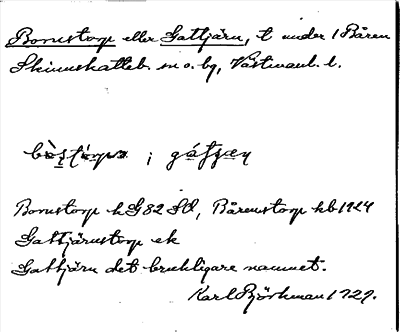 Bonustorp eller Gattjärn, t. under 1 Bären
Skinnskatteb. sn o. bg, Västmanl. l.
i
Bonustorp hG82 SO, Bärenstorp hb 1924
Gattjärnstorp ek
Gattjärn det brukligare namnet.
Karl Björkman 1929.